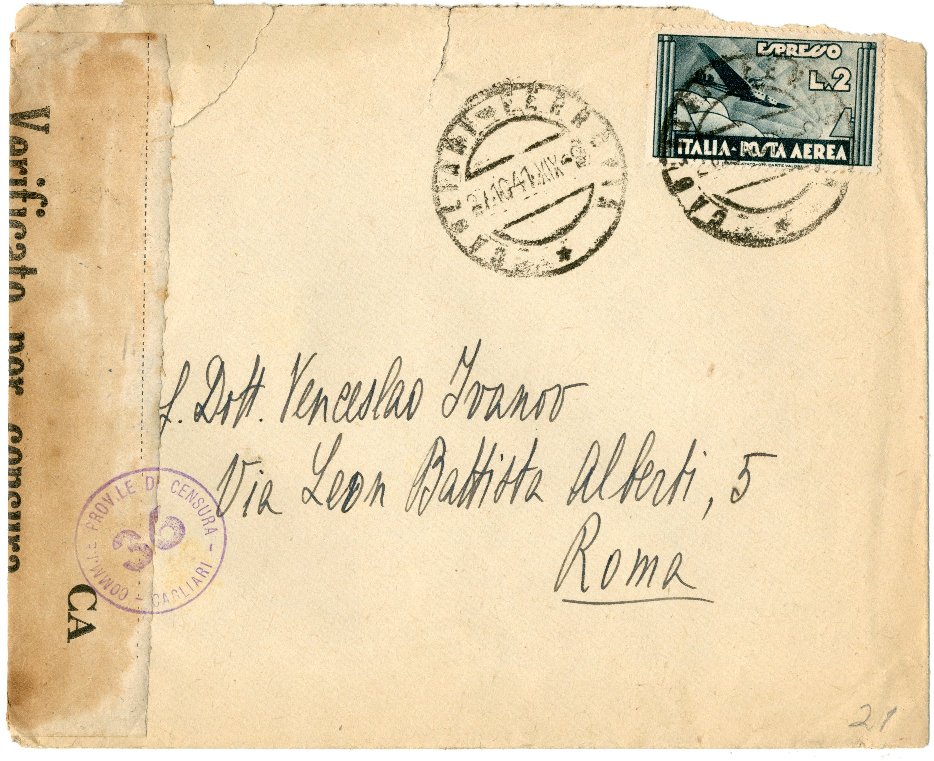 ESPRESSO
L.2
ITALIA-POSTA AEREA
CAGLIARI-FERROVIA
27.10.41.XIX-8
Verificato per censura
CA
COMM.NE PROV.LE DI CENSURA
36
CAGLIARI
Dott. Venceslao Ivanov
Via Leon Battista Alberti, 5
Roma
21